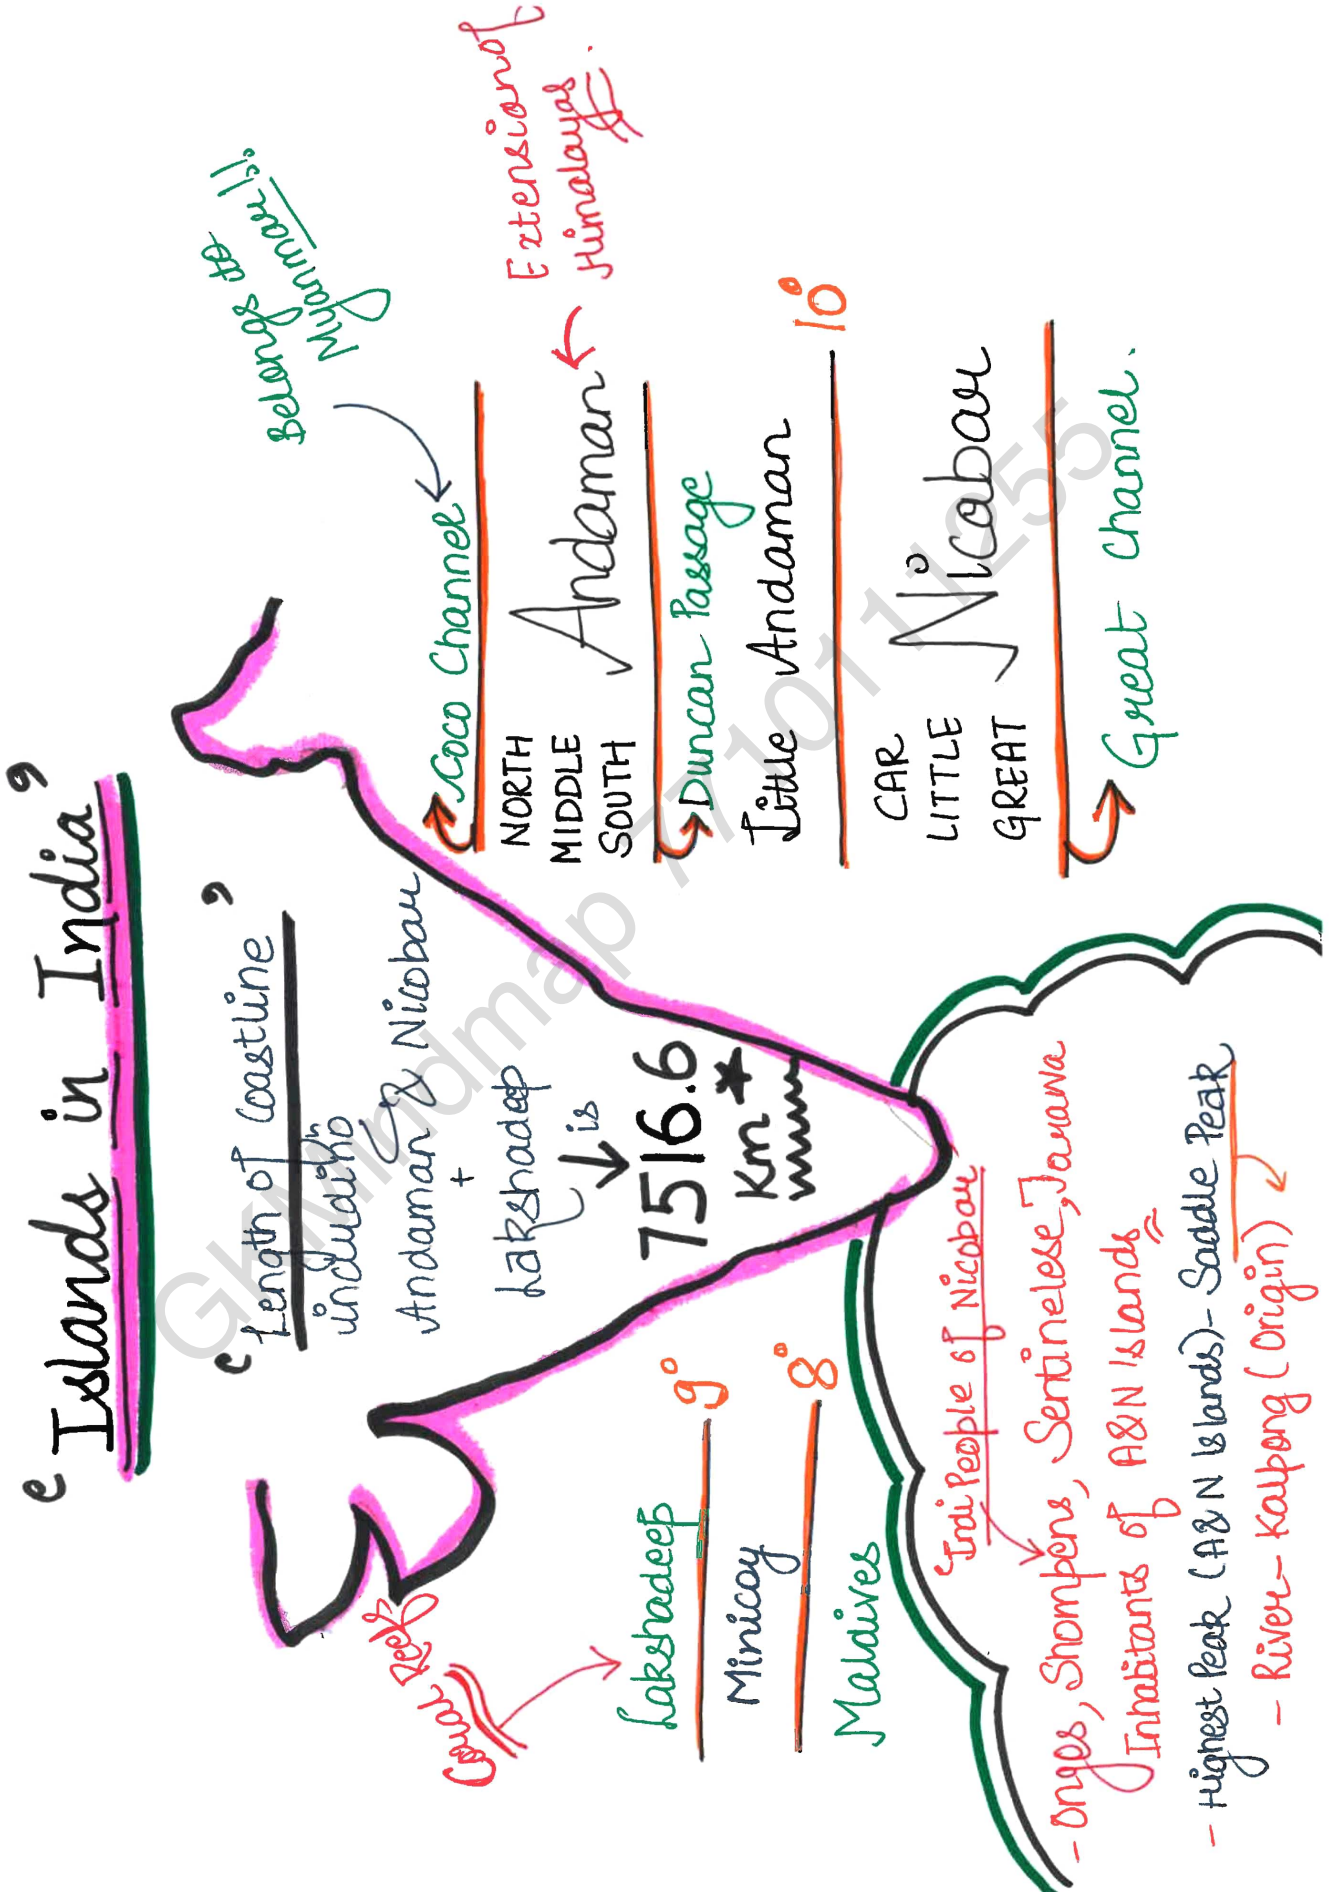 'Islands in India'
'Length of Coastline'
including
Andaman & Nicobar
+
Lakshadeep
is
7516.6
Km
Belongs to
Myanmar!!
Coco Channel
NORTH
MIDDLE
SOUTH
Andaman
Extension of
Himalayas.
Duncan Passage
Little Andaman
10°
CAR
LITTLE
GREAT
Nicobar
Great Channel.
Coral Reefs
Lakshadeep
9°
Minicoy
8°
Maldives
'Indi People of Nicobar
- Onges, Shompens, Sentinelese, Jarawa
Inhabitants of A&N Islands
- Highest Peak (A&N Islands) - Saddle Peak
- River - Kalpong (Origin)
GKMindmap 7710111255